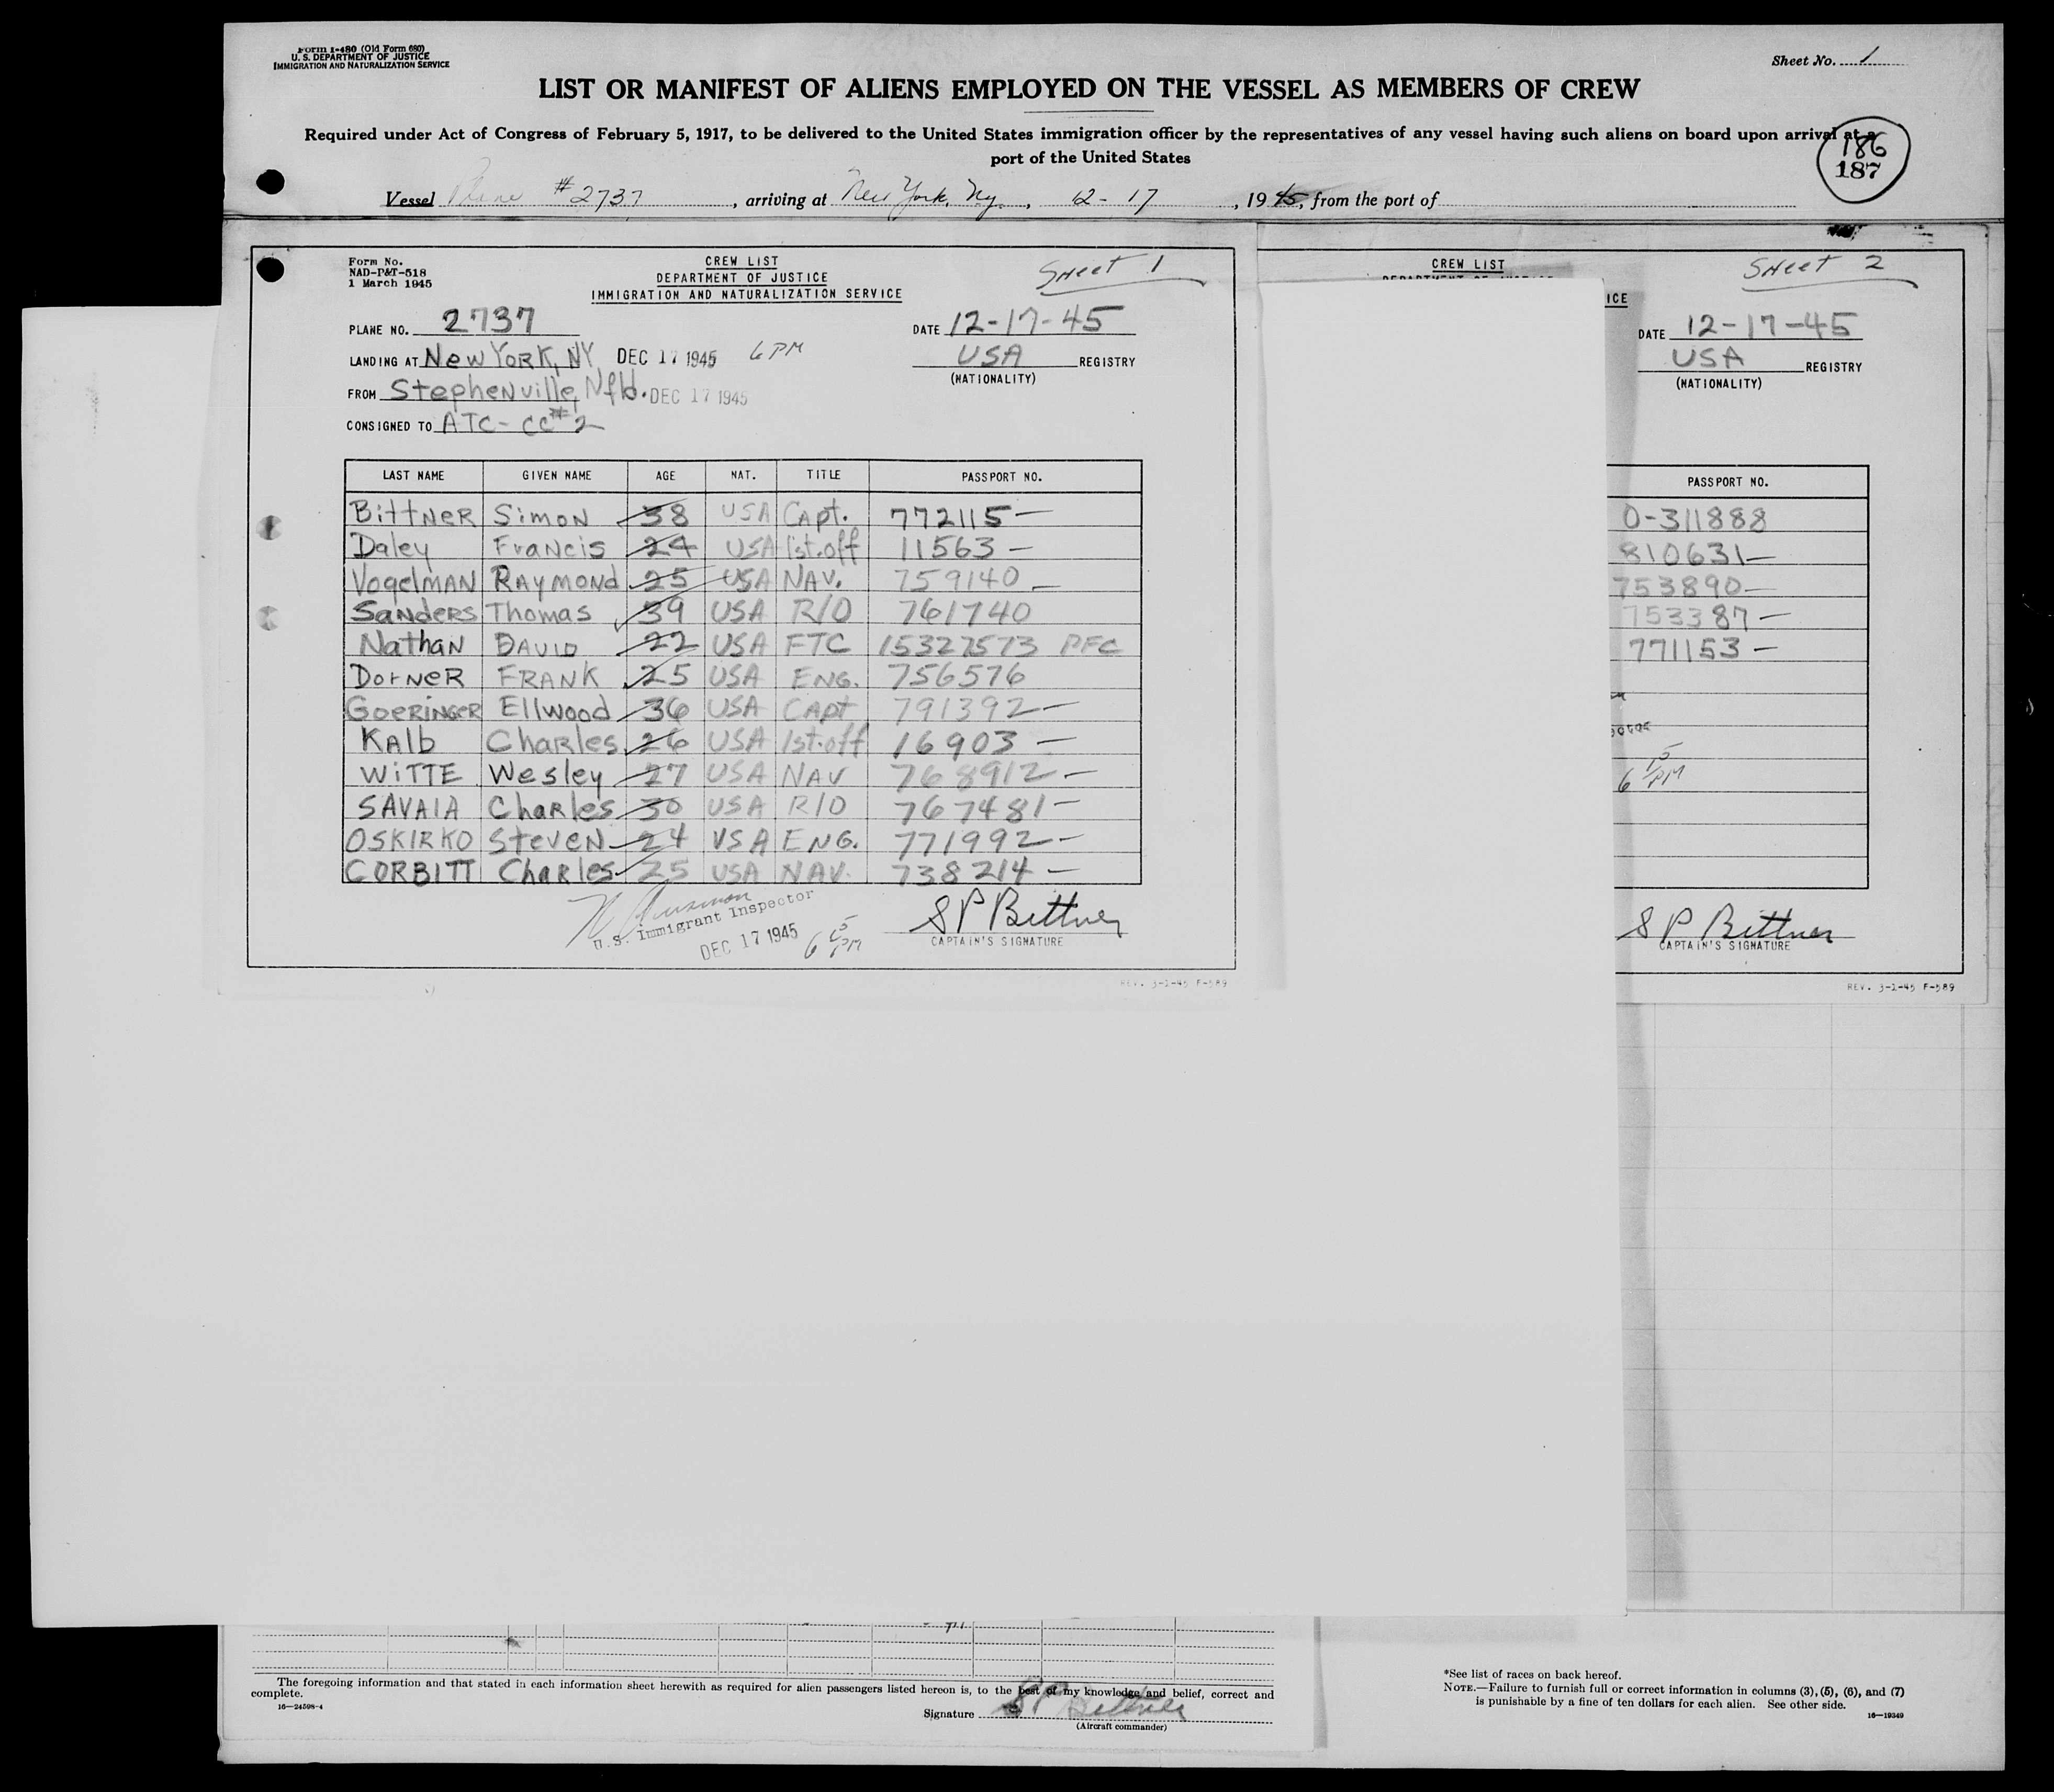 Form I-480 (Old Form 680)
U. S. DEPARTMENT OF JUSTICE
IMMIGRATION AND NATURALIZATION SERVICE
Sheet No. 1
LIST OR MANIFEST OF ALIENS EMPLOYED ON THE VESSEL AS MEMBERS OF CREW
Required under Act of Congress of February 5, 1917, to be delivered to the United States immigration officer by the representatives of any vessel having such aliens on board upon arrival at a
port of the United States
186
187
Vessel Plane #2737, arriving at New York, Ny., 12-17, 1945, from the port of
Form No.
NAD-P&T-518
1 March 1945
CREW LIST
DEPARTMENT OF JUSTICE
IMMIGRATION AND NATURALIZATION SERVICE
Sheet 1
PLANE NO. 2737
DATE 12-17-45
LANDING AT New York, NY DEC 17 1945 6 PM
USA REGISTRY
(NATIONALITY)
FROM Stephenville, Nfld. DEC 17 1945
CONSIGNED TO ATC-CC#2
LAST NAME GIVEN NAME AGE NAT. TITLE PASSPORT NO.
BittNER SiMON 38 USA CApt. 772115—
Daley Francis 24 USA 1st.off 11563—
VogelMAN RAYMOND 25 USA NAV. 759140—
SaNdERS Thomas 39 USA R/O 761740
NathaN DAVID 22 USA FTC 15327573 PFC
DorNeR FRANK 25 USA ENG. 756576
GoERINGER Ellwood 36 USA CApt 791392—
KAlb ChaRles 26 USA 1st.off 16903—
WiTTE Wesley 27 USA NAV 768912—
SAVAIA ChaRles 30 USA R/O 767481—
OSKIRKO SteveN 24 USA ENG. 771992—
CORBITT ChaRles 25 USA NAV. 738214—
U.S. Immigrant Inspector
DEC 17 1945 6 15 PM
S P Bittner
CAPTAIN'S SIGNATURE
REV. 3-2-45 F-589
CREW LIST
Sheet 2
ICE
DATE 12-17-45
USA REGISTRY
(NATIONALITY)
PASSPORT NO.
O-311888
810631—
753890—
753387—
771153—
6 15 PM
S P Bittner
CAPTAIN'S SIGNATURE
REV. 3-2-45 F-589
The foregoing information and that stated in each information sheet herewith as required for alien passengers listed hereon is, to the best of my knowledge and belief, correct and
complete.
16—24598-4
Signature S P Bittner
(Aircraft commander)
*See list of races on back hereof.
NOTE.—Failure to furnish full or correct information in columns (3), (5), (6), and (7)
is punishable by a fine of ten dollars for each alien. See other side.
16—19349